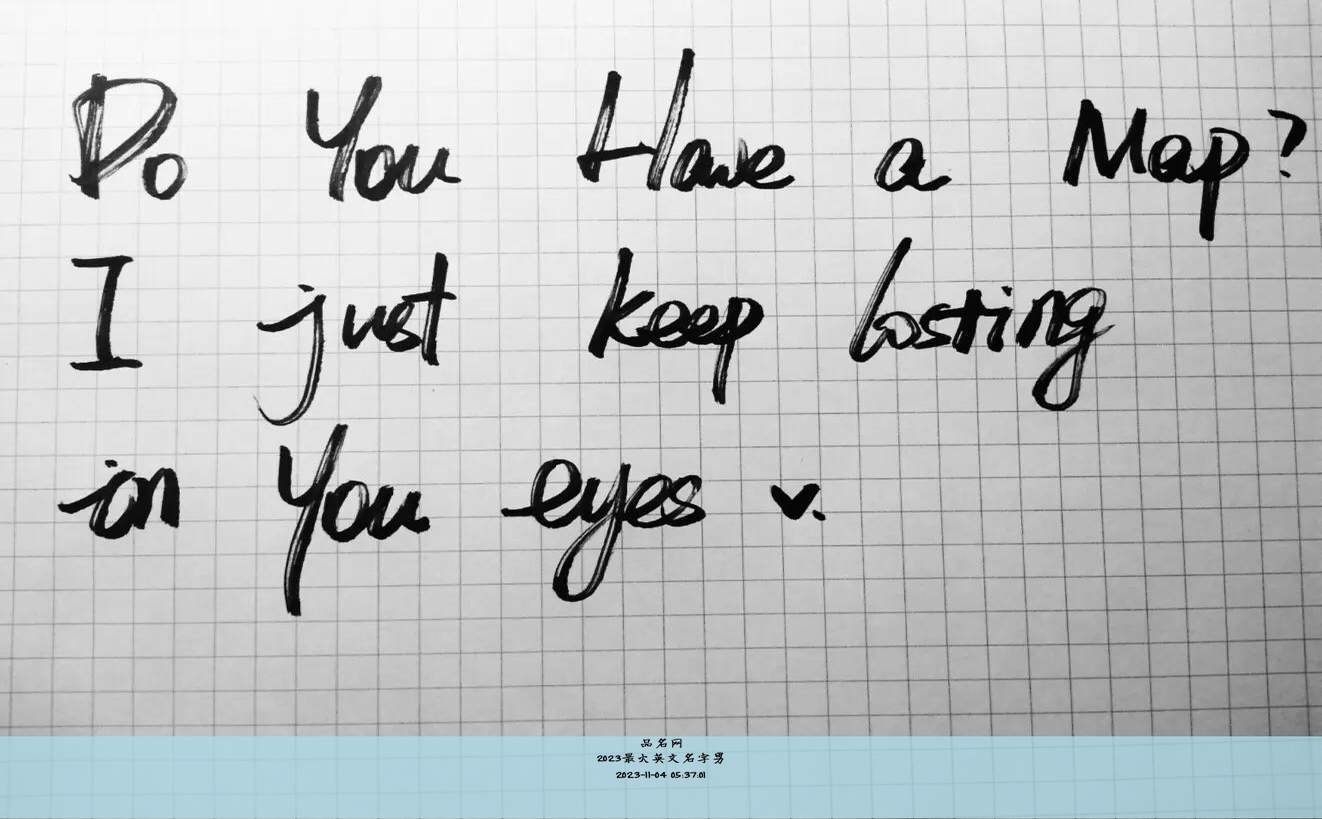 Do You Have a Map?
I just keep losting
in You eyes ♥.
品名网
2023最火英文名字男
2023-11-04 05:37:01